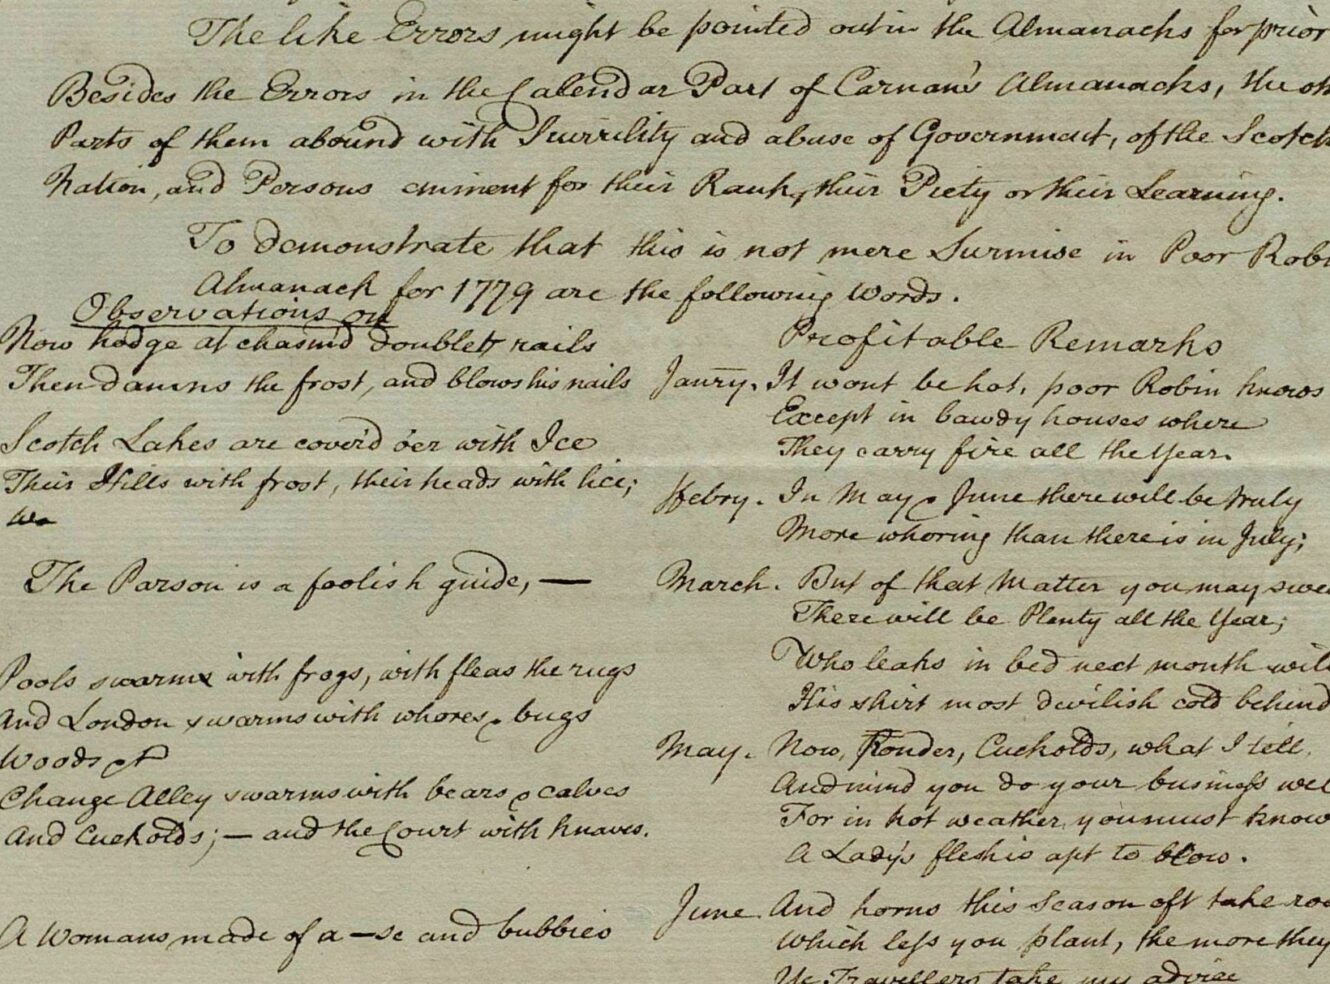 The like Errors might be pointed out in the Almanacks for prior
Besides the Errors in the Calendar Part of Carnan's Almanacks, the
Parts of them abound with Scurrility and abuse of Government, of the Scotch
Nation, and Persons eminent for their Rank, their Piety or their Learning.
To demonstrate that this is not mere Surmise in Poor Robi
Almanack for 1779 are the following Words.
Observations on
Now hodge at chasm'd doublett rails
Then damns the frost, and blows his nails
Scotch Lakes are cover'd o'er with Ice
Their Hills with frost, their heads with lice;
The Parson is a foolish guide, —
Pools swarm with frogs, with fleas the rugs
And London swarms with whores & bugs
Woods &
Change Alley swarms with bears & calves
And Cuckolds; — and the Court with knaves.
A Womans made of a—se and bubbies
Profitable Remarks
Janry. It wont be hot, poor Robin knows
Except in bawdy houses where
They carry fire all the Year.
ffebry. In May & June there will be truly
More whoring than there is in July;
March. But of that Matter you may swea
There will be Plenty all the Year;
Who leaks in bed next month will
His shirt most devilish cold behind
May. Now, Ponder, Cuckolds, what I tell,
And mind you do your business wel
For in hot weather, you must know
A Lady's flesh is apt to blow.
June. And horns this Season oft take roo
Which less you plant, the more they
Ye Travellers take my advice